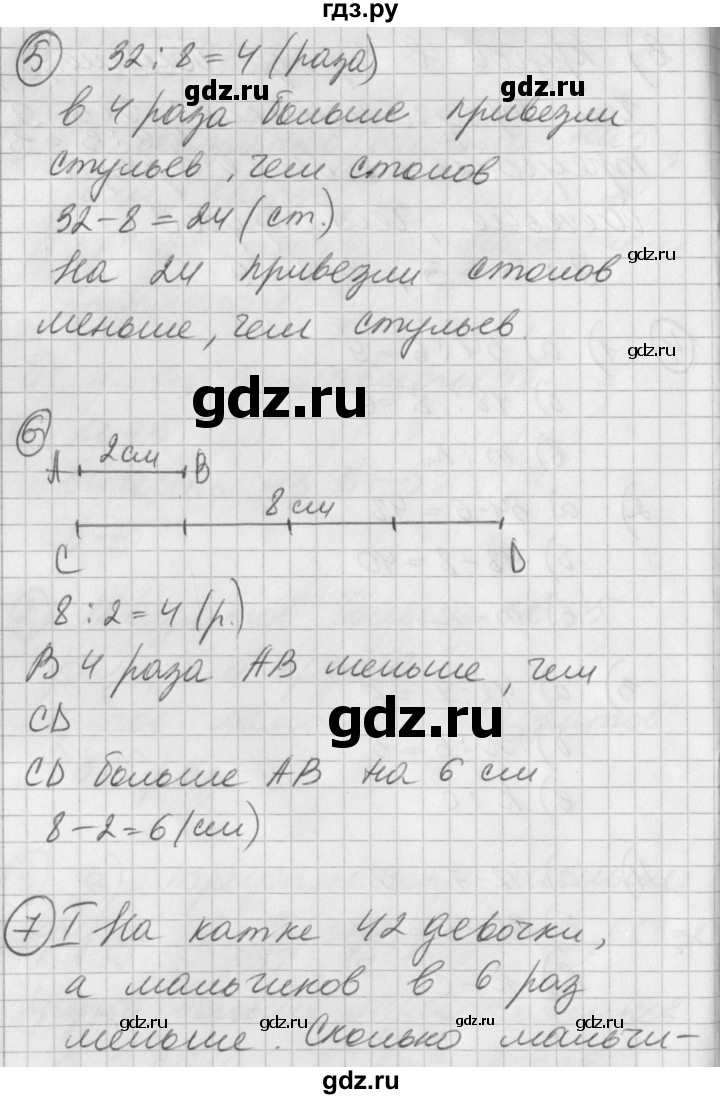 гдз.ру
5 32 : 8 = 4 (раза)
gdz.ru gdz.ru
в 4 раза больше привезли
стульев, чем столов
32 - 8 = 24 (ст.)
gdz.ru
На 24 привезли столов
меньше, чем стульев.
gdz.ru
6
A 2 см B
8 см
C D
8 : 2 = 4 (р.)
В 4 раза AB меньше, чем
CD
gdz.ru
CD больше AB на 6 см
8 - 2 = 6 (см)
7 I На катке 42 девочки,
а мальчиков в 6 раз
gdz.ru gdz.ru gdz.ru
меньше. Сколько мальчи-
gdz.ru